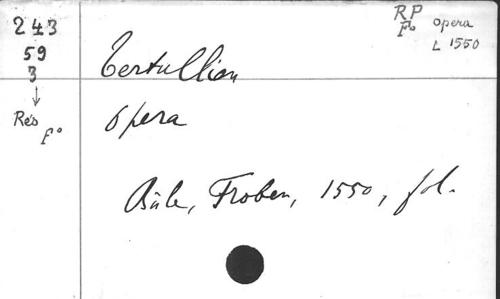 243
59
3
↓
Rés
F°
RP
F° opera
L 1550
Tertullien
Opera
Bâle, Froben, 1550, fol.